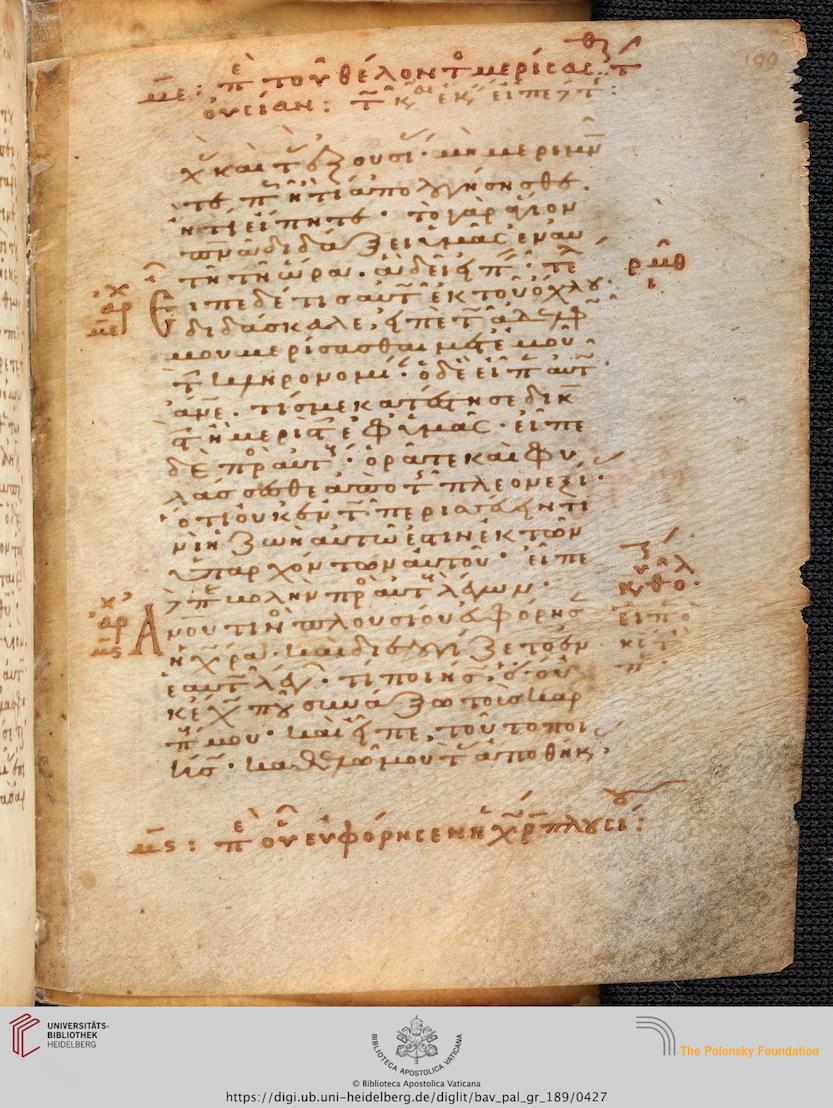 199
με: π τοῦ θέλοντ μερίσασθ τ
οὐσίαν:
χ καὶ τ ἐξουσί· μὴ μεριμν
τε π ἢ τί ἀπολογήσησθε·
ἢ τί εἴπητε· τὸ γὰρ ἅγιον
πνα διδάξει ὑμᾶς ἐν αυ
τῆ τῆ ὥρα· ἃ δεῖ εἰπ:
Εἶπε δέ τις αὐτ ἐκ τοῦ ὄχλου·
διδάσκαλε, εἰπὲ τ ἀδελφ
μου μερίσασθαι μετ ἐμοῦ
τ κληρονομί· ὁ δὲ εἶπ αὐτ
ἄνε· τίς με κατέστησε δικ
τ ἢ μεριστ ἐφ ὑμᾶς· εἶπε
δὲ πρ αὐτ· ὁρᾶτε καὶ φυ
λάσσεσθε ἀπὸ τ πλεονεξί·
ὅτι οὐκ ἐν τ περισσεύειν τι
νὶ ἡ ζωὴ αὐτῶ ἐστιν ἐκ τῶν
ὑπαρχόντων αὐτοῦ· εἶπε
δ π βολὴν πρ αὐτ λέγων·
Ανου τινὸς πλουσίου εὐφόρησ
ἡ χρα· καὶ διελογίζετο ἐν
ἑαυτ λέγ· τί ποιήσ, ὅτι οὐ
κ ἔχ ποῦ συνάξω τοὺς καρ
π μου· καὶ εἶπε, τοῦτο ποι
ήσ· καθελῶ μου τ ἀποθήκ,
μς: π οὗ εὐφόρησεν ἡ χρ πλουσί:
UNIVERSITÄTS-
BIBLIOTHEK
HEIDELBERG
BIBLIOTECA APOSTOLICA VATICANA
The Polonsky Foundation
© Biblioteca Apostolica Vaticana
https://digi.ub.uni-heidelberg.de/diglit/bav_pal_gr_189/0427